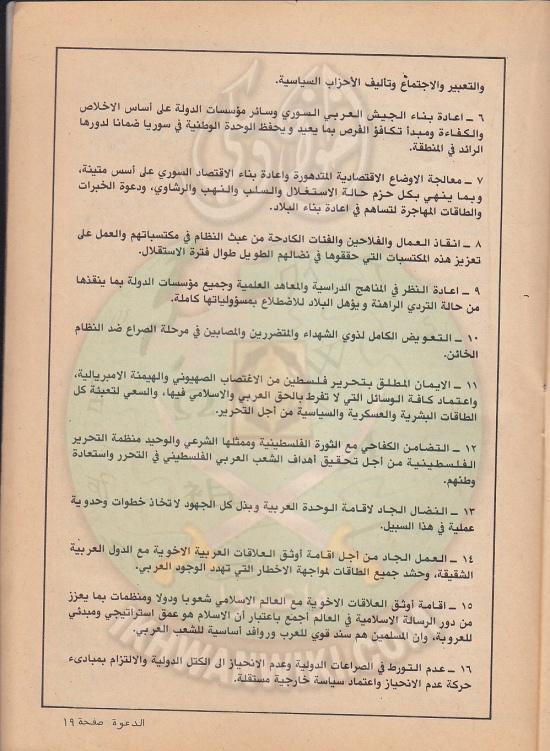 والتعبير والاجتماع وتأليف الأحزاب السياسية.
٦ ـ اعادة بناء الجيش العربي السوري وسائر مؤسسات الدولة على أساس الاخلاص
والكفاءة ومبدأ تكافؤ الفرص بما يعيد ويحفظ الوحدة الوطنية في سوريا ضمانا لدورها
الرائد في المنطقة.
٧ ـ معالجة الاوضاع الاقتصادية المتدهورة واعادة بناء الاقتصاد السوري على أسس متينة،
وبما ينهي بكل حزم حالة الاستغلال والسلب والنهب والرشاوي، ودعوة الخبرات
والطاقات المهاجرة لتساهم في اعادة بناء البلاد.
٨ ـ انقاذ العمال والفلاحين والفئات الكادحة من عبث النظام في مكتسباتهم والعمل على
تعزيز هذه المكتسبات التي حققوها في نضالهم الطويل طوال فترة الاستقلال.
٩ ـ اعادة النظر في المناهج الدراسية والمعاهد العلمية وجميع مؤسسات الدولة بما ينقذها
من حالة التردي الراهنة ويؤهل البلاد للاضطلاع بمسؤولياتها كاملة.
١٠ ـ التعويض الكامل لذوي الشهداء والمتضررين والمصابين في مرحلة الصراع ضد النظام
الخائن.
١١ ـ الايمان المطلق بتحرير فلسطين من الاغتصاب الصهيوني والهيمنة الامبريالية،
واعتماد كافة الوسائل التي لا تفرط بالحق العربي والاسلامي فيها، والسعي لتعبئة كل
الطاقات البشرية والعسكرية والسياسية من أجل التحرير.
١٢ ـ التضامن الكفاحي مع الثورة الفلسطينية وممثلها الشرعي والوحيد منظمة التحرير
الفلسطينية من أجل تحقيق أهداف الشعب العربي الفلسطيني في التحرر واستعادة
وطنهم.
١٣ ـ النضال الجاد لاقامة الوحدة العربية وبذل كل الجهود لاتخاذ خطوات وحدوية
عملية في هذا السبيل.
١٤ ـ العمل الجاد من أجل اقامة أوثق العلاقات العربية الاخوية مع الدول العربية
الشقيقة، وحشد جميع الطاقات لمواجهة الاخطار التي تهدد الوجود العربي.
١٥ ـ اقامة أوثق العلاقات الاخوية مع العالم الاسلامي شعوبا ودولا ومنظمات بما يعزز
من دور الرسالة الاسلامية في العالم أجمع باعتبار أن الاسلام هو عمق استراتيجي ومبدئي
للعروبة، وان المسلمين هم سند قوي للعرب وروافد أساسية للشعب العربي.
١٦ ـ عدم التورط في الصراعات الدولية وعدم الانحياز الى الكتل الدولية والالتزام بمبادىء
حركة عدم الانحياز واعتماد سياسة خارجية مستقلة.
الدعوة صفحة ١٩